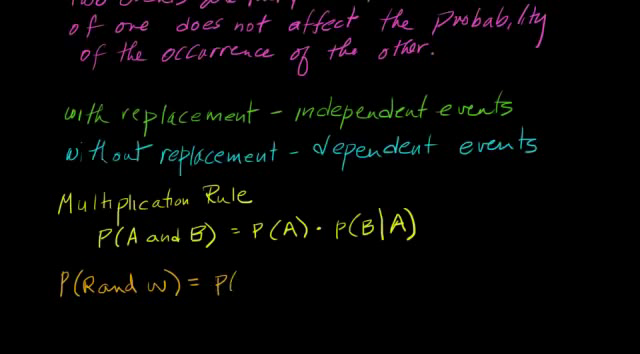 of one does not affect the probability
of the occurrence of the other.
with replacement - independent events
without replacement - dependent events
Multiplication Rule
P(A and B) = P(A) · P(B|A)
P(R and W) = P(